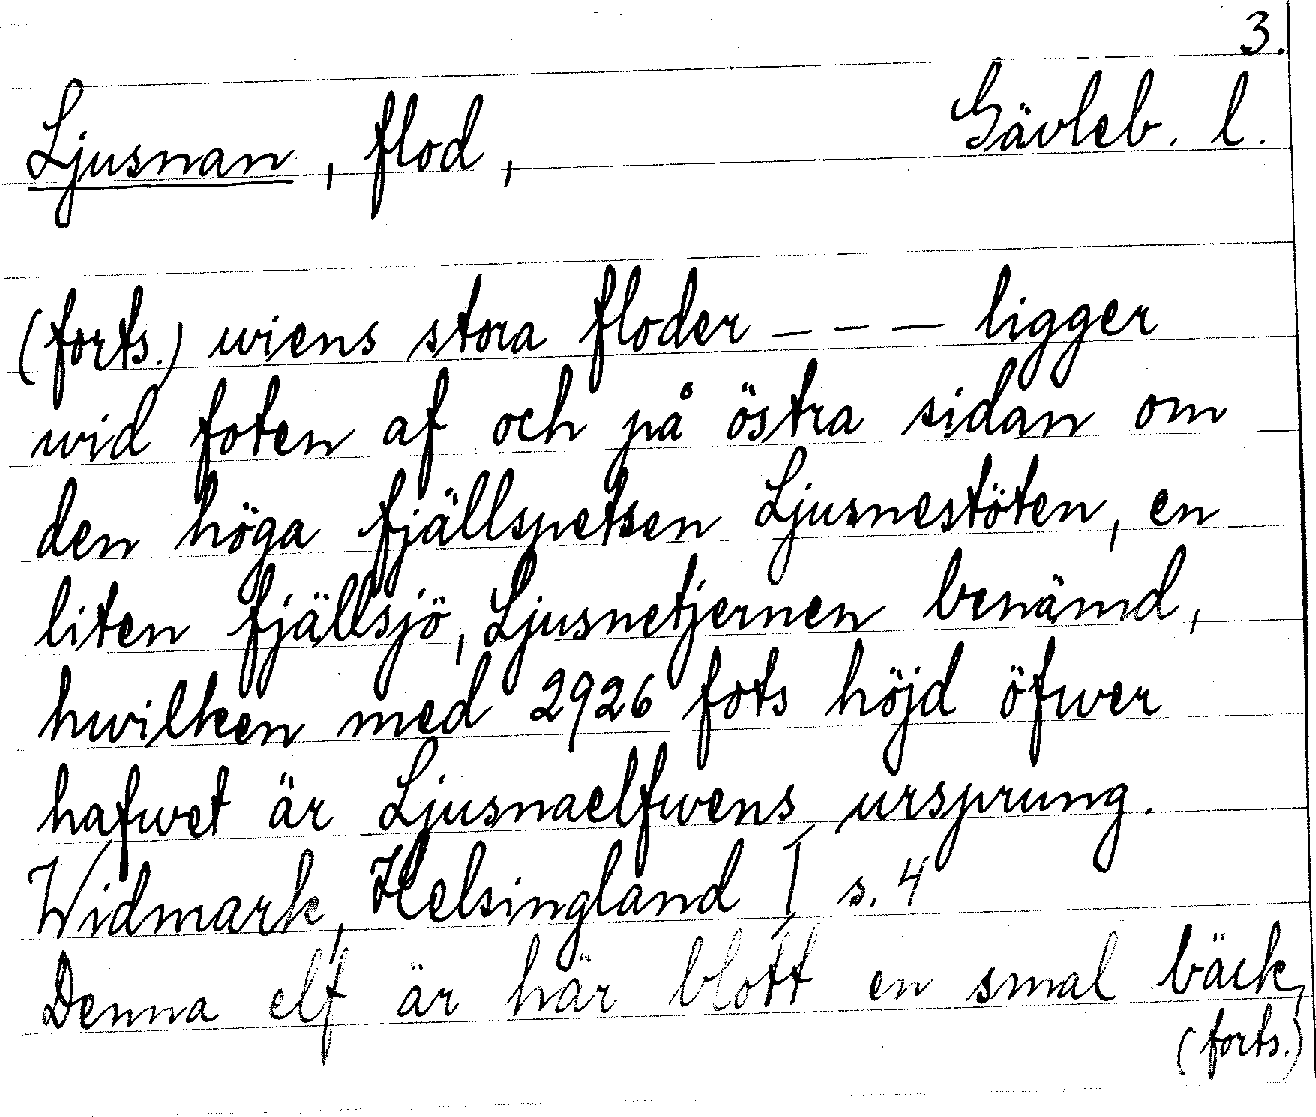 3.
Ljusnan, flod, Gävleb. l.
(forts.) wiens stora floder - - - ligger
wid foten af och på östra sidan om
den höga fjällspetsen Ljusnestöten, en
liten fjällsjö, Ljusnetjernen benämd,
hwilken med 2926 fots höjd öfwer
hafwet är Ljusnaelfwens ursprung.
Widmark, Helsingland I s. 4
Denna elf är här blott en smal bäck,
(forts.)